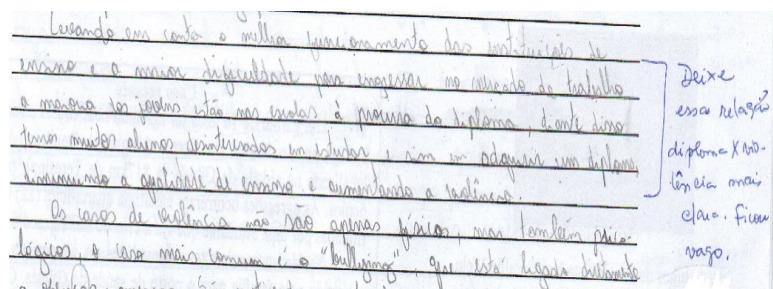 Levando em conta o melhor funcionamento das instituições de
ensino e a maior dificuldade para engessar no mercado de trabalho
a maioria dos jovens estão nas escolas à procura do diploma, diante disso
temos muitos alunos desinteressados em estudar e sim em adquirir um diploma,
diminuindo a qualidade de ensino e aumentando a violência.
Os casos de violência não são apenas físicos, mas também psico-
lógicos, o caso mais comum é o "bullying", que está ligado diretamente
Deixe
essa relação
diploma X vio-
lência mais
clara. Ficou
vago.